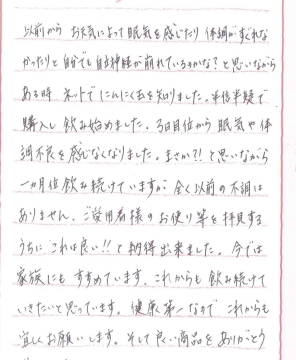 以前から お天気によって眠気を感じたり 体調がすぐれな
かったりと自分でも自律神経が崩れているのかな？と思いながら
ある時 ネットでにんにく玉を知りました。半信半疑で
購入し 飲み始めました。3日目位から 眠気や体
調不良を感じなくなりました。まさか?!と思いながら
一ヶ月位飲み続けていますが 全く以前の不調は
ありません。ご愛用者様のお便り等を拝見する
うちに これは良い!!と納得出来ました。今では
家族にも すすめています。これからも 飲み続けて
いきたいと思っています。健康第一なので これからも
宜しくお願いします。そして良い商品を ありがとう